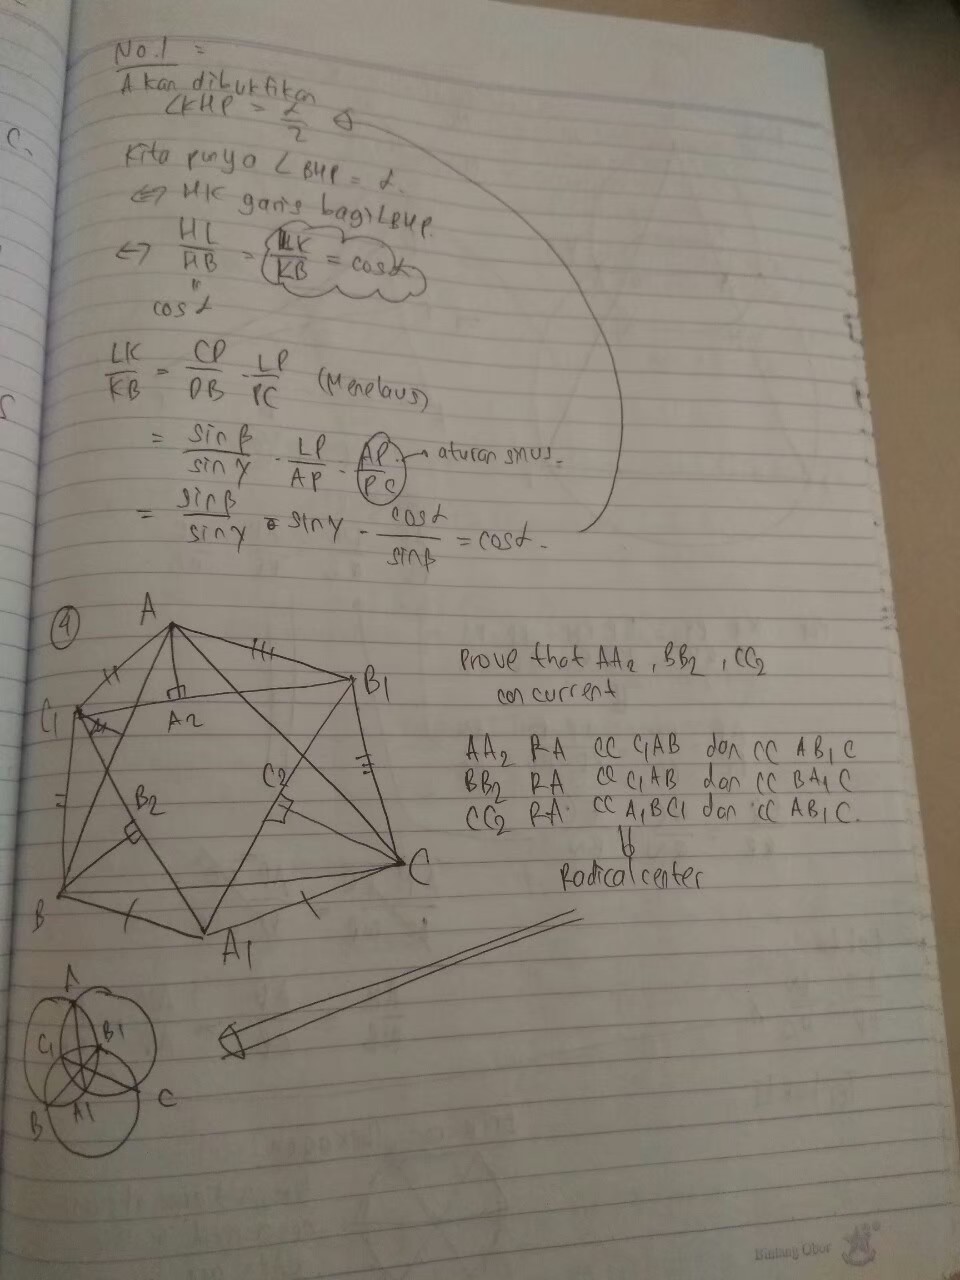 No.1 =
Akan dibuktikan
∠KHP = α/2
Kita punya ∠BHP = α.
⇔ HK garis bagi ∠BHP.
⇔ HL/HB = LK/KB = cos α
"
cos α
LK/KB = CP/PB · LP/PC (Menelaus)
= sin β/sin γ · LP/AP · AP/PC → aturan sinus =
= sin β/sin γ · sin γ - cos α/sin β = cos α.
4
A
B1
C1
A2
C2
B2
C
B
A1
Prove that AA2, BB2, CC2
concurrent
AA2 RA CC C1AB dan CC AB1C
BB2 RA CC C1AB dan CC BA1C
CC2 RA CC A1BC1 dan CC AB1C.
Radical center
A
C1
B1
B
A1
C
Bintang Obor